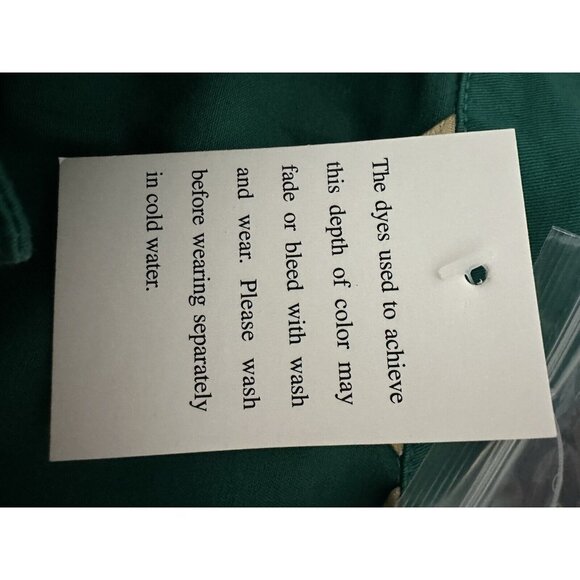 The dyes used to achieve
this depth of color may
fade or bleed with wash
and wear. Please wash
before wearing separately
in cold water.